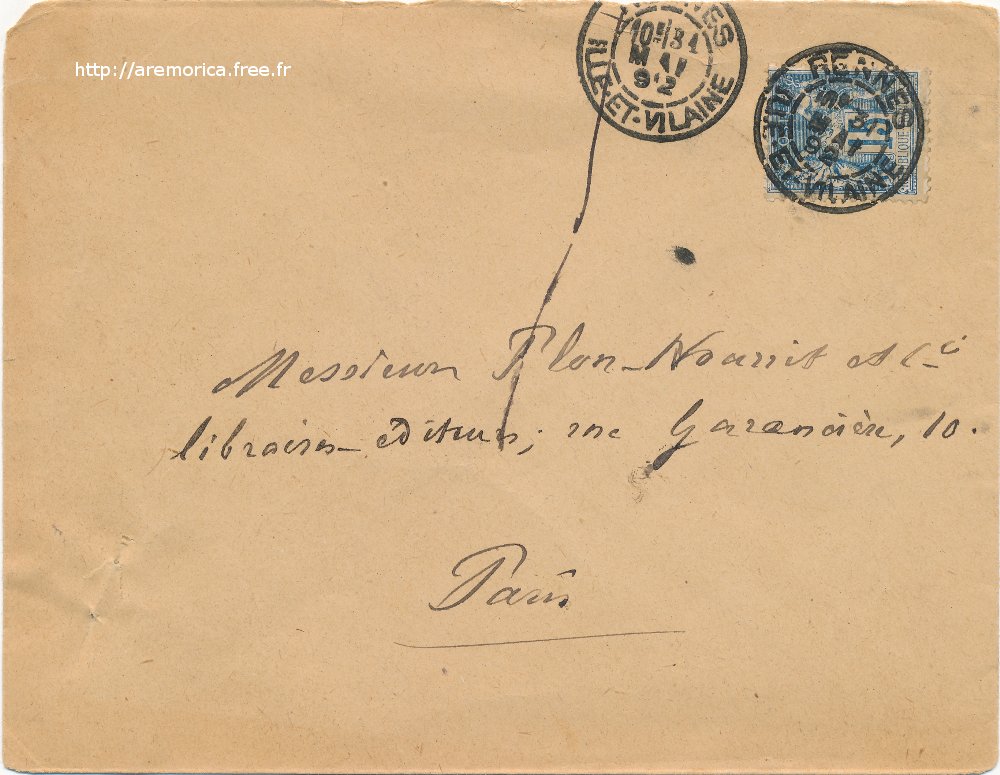 http://aremorica.free.fr
RENNES
10E/31
MAI
92
ILLE-ET-VILAINE
RENNES
MAI
92
ILLE-ET-VILAINE
15
Messieurs Plon-Nourrit et Cie
libraires-éditeurs, rue Garancière, 10.
Paris